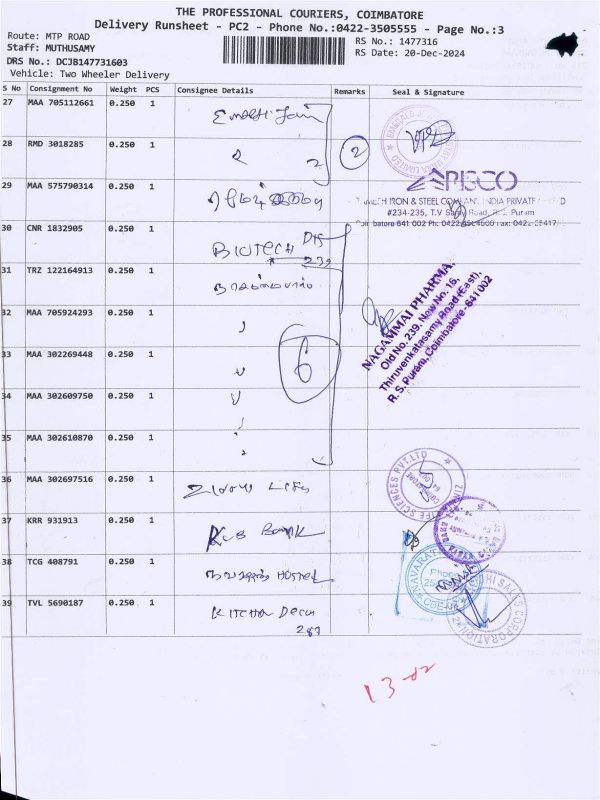 THE PROFESSIONAL COURIERS, COIMBATORE
Delivery Runsheet - PC2 - Phone No.:0422-3505555 - Page No.:3
Route: MTP ROAD
RS No.: 1477316
Staff: MUTHUSAMY
RS Date: 20-Dec-2024
DRS No.: DCJB147731603
Vehicle: Two Wheeler Delivery
S No Consignment No Weight PCS Consignee Details Remarks Seal & Signature
27 MAA 705112661 0.250 1
28 RMD 3018285 0.250 1 2
29 MAA 575790314 0.250 1
IRON & STEEL COMPANY INDIA PRIVATE
#234-235, T.V Samy Road, R.S. Puram
30 CNR 1832905 0.250 1 BIOTECH
239
31 TRZ 122164913 0.250 1
NAGAMMAI PHARMA
Old No. 239, New No. 16,
Thiruvenkatasamy Road (East),
R. S. Puram, Coimbatore - 641002
32 MAA 705924293 0.250 1
33 MAA 302269448 0.250 1 6
34 MAA 302609750 0.250 1
35 MAA 302610870 0.250 1
36 MAA 302697516 0.250 1
LIFE SCIENCES PVT.LTD
37 KRR 931913 0.250 1 KVB BANK
38 TCG 408791 0.250 1 HOSTEL
39 TVL 5690187 0.250 1 KITCHEN DECH
287
SALES CORPORATION